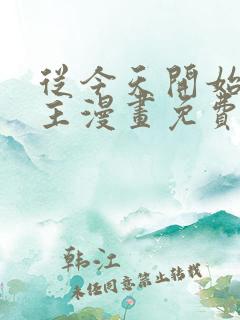 從今天開始
王漫畫免費
韩江
未经同意禁止转载